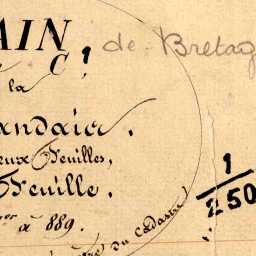 AIN
C
de Bretag
la
andais.
eux Feuilles,
Feuille.
1
250
à 889.
du Cadastre